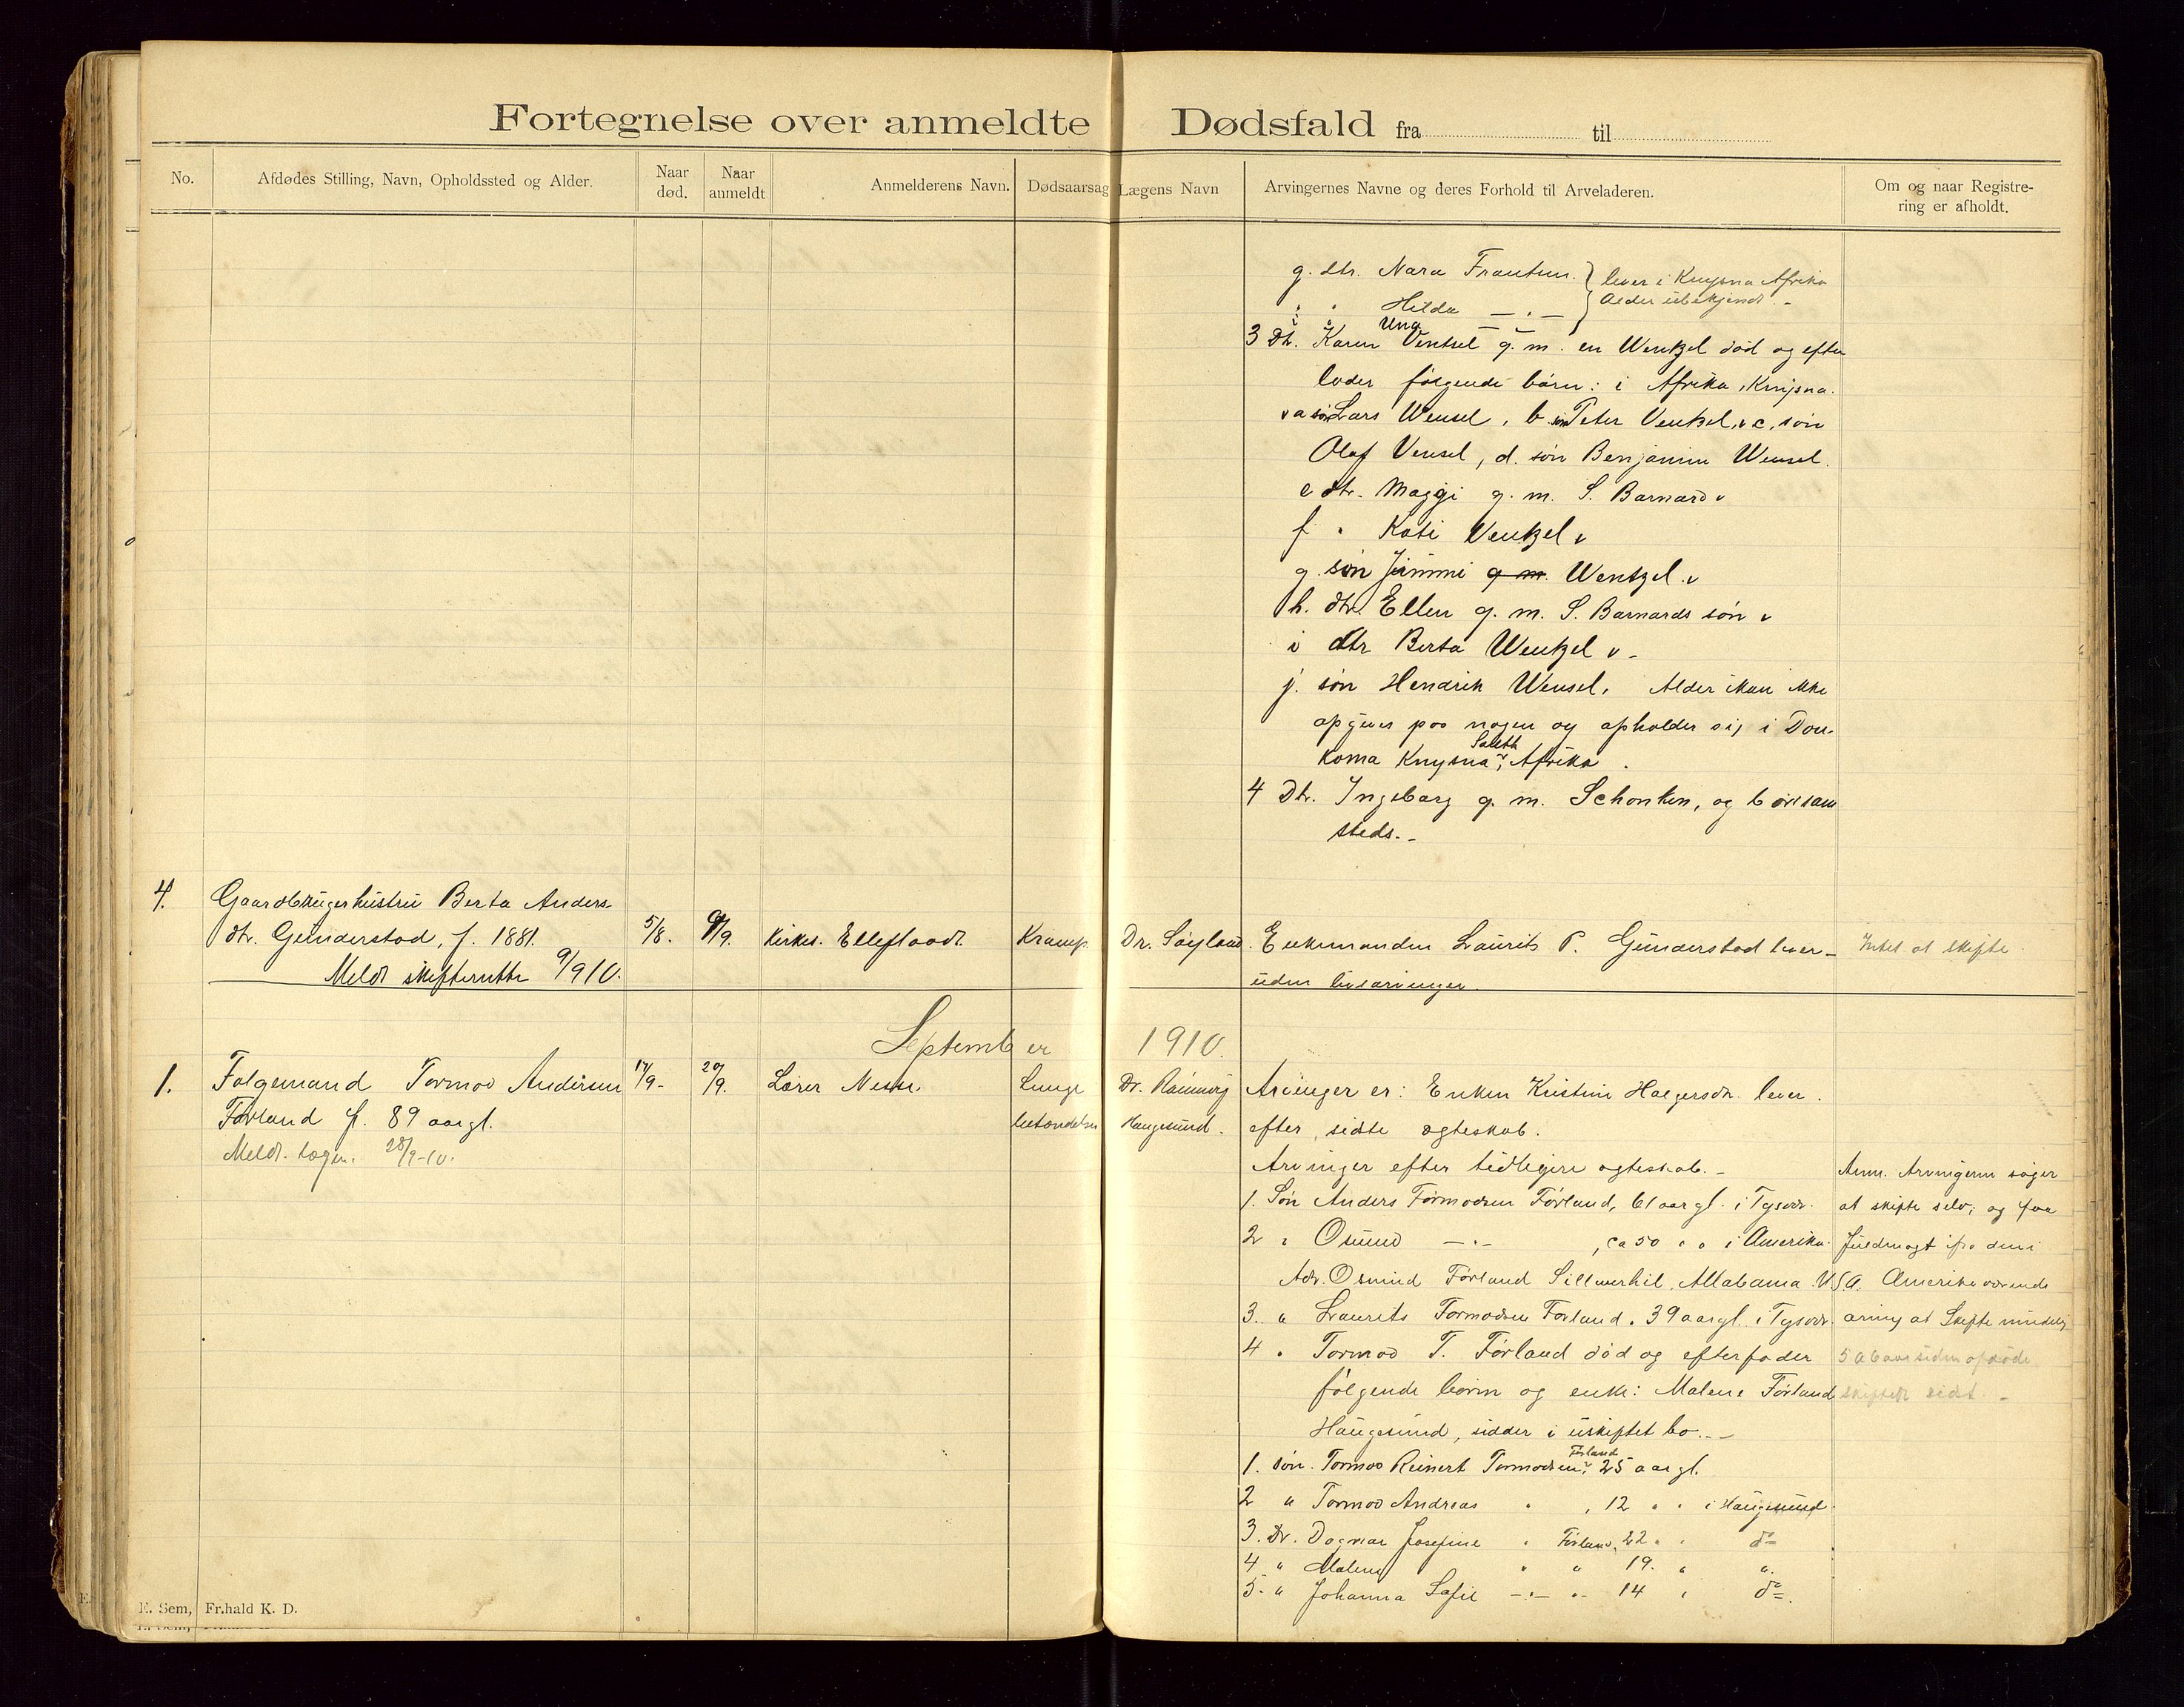 Fortegnelse over anmeldte Dødsfald fra til
No. Afdødes Stilling, Navn, Opholdssted og Alder. Naar død. Naar anmeldt Anmelderens Navn. Dødsaarsag Lægens Navn Arvingernes Navne og deres Forhold til Arveladeren. Om og naar Registrering er afholdt.
g. dtr. Nara Frantsen. } lever i Knysna Afrika
" " Hilda — " — } Alder ubekjendt. -
" " Una — " —
3 Dtr. Karen Ventsel g. m. en Wentzel død og efter
lader følgende børn: i Afrika, Knysna.
v a søn Lars Wensel, b søn Peter Ventzel, v c, søn
Olaf Vensel, d. søn Benjamin Wensel.
e dtr. Maggi g. m. S. Barnard v
f " Kati Ventzel v
g. søn Jimmi g m. Wentzel. v
h. dtr. Ellen g. m. S. Barnards søn v
i dtr Berta Wentzel v -
j. søn Hendrik Wensel. Alder kan ikke
opgives paa nogen og opholder sig i Dou-
koma Knysna, South Afrika.
4 Dtr. Ingeborg g. m. Schonken, og bor sam
steds. -
4. Gaardbrugerhustru Berta Anders-
dtr. Gunderstad, f. 1881. 5/8. 9/9. Kirkes. Elleflaadt. Kramp. Dr. Søyland. Enkemanden Laurits P. Gunderstad lever - Intet at skifte.
Meldt skifteretten 9/9 10. uden livsarvinger.
September 1910.
1. Folgemand Tormod Andersen 17/9- 20/9. Lærer Nesse. Lunge Dr. Arvinger er: Enken Kristine Holgersdr. lever.
Førland f. 89 aar gl. betændelse Haugesund. efter, sidte ægteskab.
Meldt. 28/9-10.
Arvinger efter tidligere ægteskab. - Anm. Arvingerne søger
1. Søn Anders Tormodsen Førland, 61 aar gl. i Tysvær. at skifte selv, og faa
2 " Osmund — " — , ca 50 " " i Amerika. fuldmagt ifra den i
Adr. Osmund Førland Sillwerhil, Allabama. U S A. Amerika værende
3. " Laurits Tormodsen Førland. 39 aar gl. i Tysvær. arving at Skifte
4 " Tormod T. Førland død og efterlader 5 a 6 aar siden
følgende børn og enke: Malene Førland skiftet sidst. -
Haugesund, sidder i uskiftet bo. - -
1. søn. Tormod Reinert Tormodsen Førland, 25 aar gl.
2 " Tormod Andreas " , 12 " " i Haugesund.
3. Dr. Dagmar Josefine " Førland, 22 " " do
4 " Malene " " 19. " "
5. " Johanna Sofie — " — " 14 " do.
E. Sem, Fr.hald K. D.